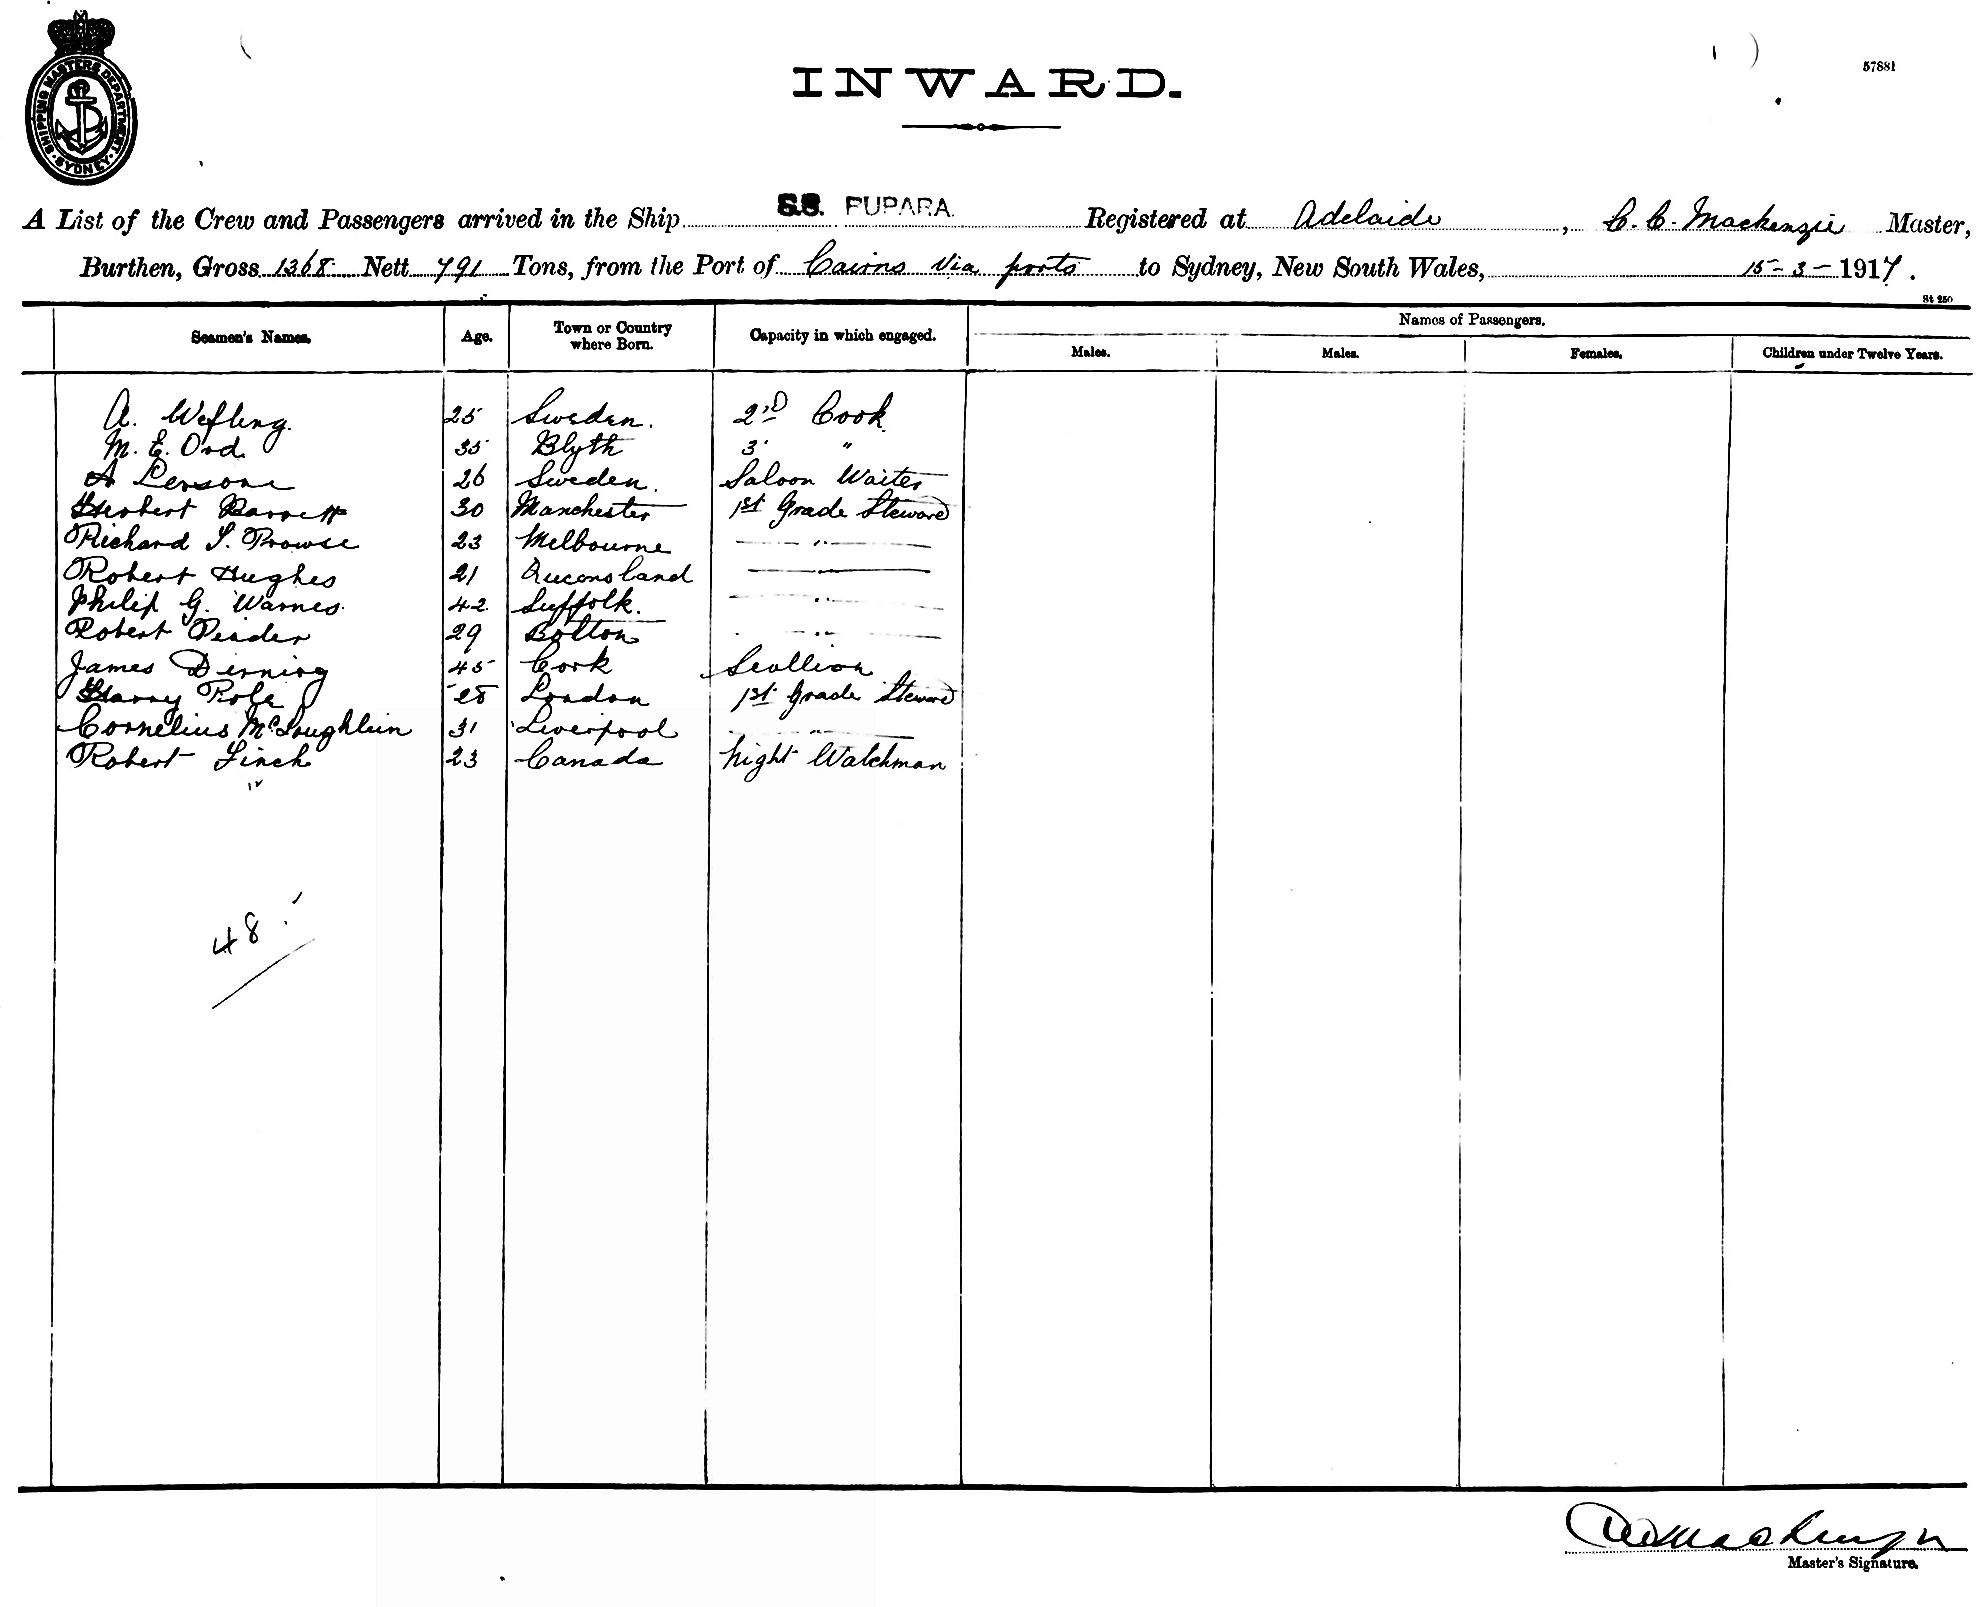 SHIPPING MASTERS DEPARTMENT SYDNEY
57881
INWARD.
A List of the Crew and Passengers arrived in the Ship SS. RUPARA Registered at Adelaide, C. C. Mackenzie Master,
Burthen, Gross 1368 Nett 791 Tons, from the Port of Cairns via ports to Sydney, New South Wales, 15-3-1917.
St 250
Seamen's Names. Age. Town or Country where Born. Capacity in which engaged. Names of Passengers.
Males. Males. Females. Children under Twelve Years.
A. 25 Sweden. 2nd Cook
M. E. Ord 35 Blyth 3 "
A Persone 26 Sweden. Saloon Waiter
Herbert Barrett 30 Manchester 1st Grade Steward
Richard S. Prowse 23 Melbourne "
Robert Hughes 21 Queensland "
Philip G. Warnes 42 Suffolk. "
Robert Pinder 29 Bolton "
James 45 Cork Scullion
Harry Role 28 London 1st Grade Steward
Cornelius McLoughlin 31 Liverpool "
Robert Finch 23 Canada Night Watchman
12
48
Master's Signature.